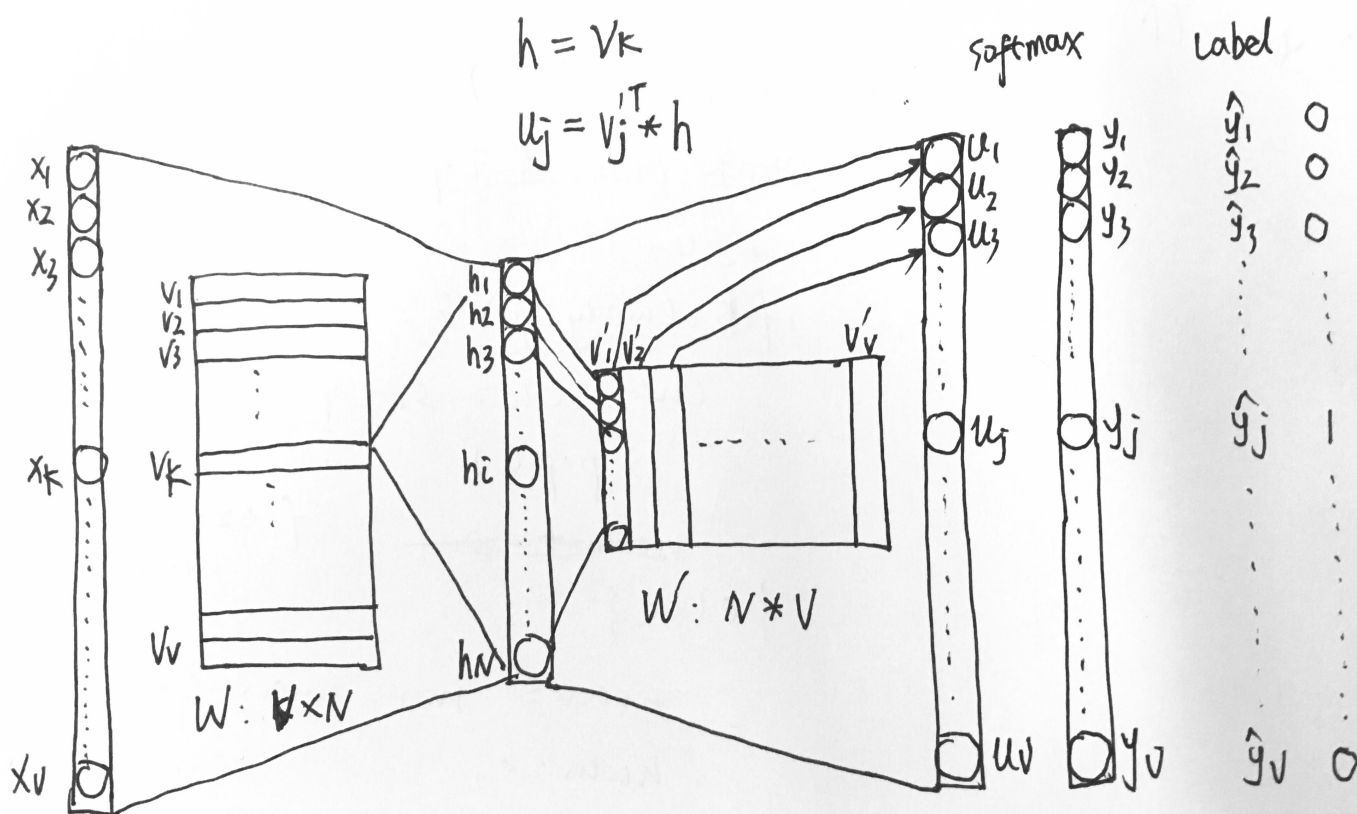 h = Vk
uj = Vj'T * h
softmax
Label
x1
x2
x3
xk
xv
V1
V2
V3
Vk
Vv
W: V×N
h1
h2
h3
hi
hN
V1' V2' Vv'
W: N*V
u1
u2
u3
uj
uv
y1
y2
y3
yj
yv
ŷ1 0
ŷ2 0
ŷ3 0
ŷj 1
ŷv 0